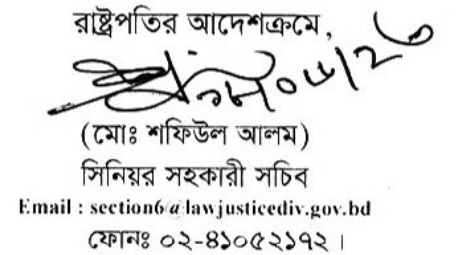 রাষ্ট্রপতির আদেশক্রমে,
(মোঃ শফিউল আলম)
সিনিয়র সহকারী সচিব
Email : section6@lawjusticediv.gov.bd
ফোনঃ ০২-৪১০৫২১৭২ ।